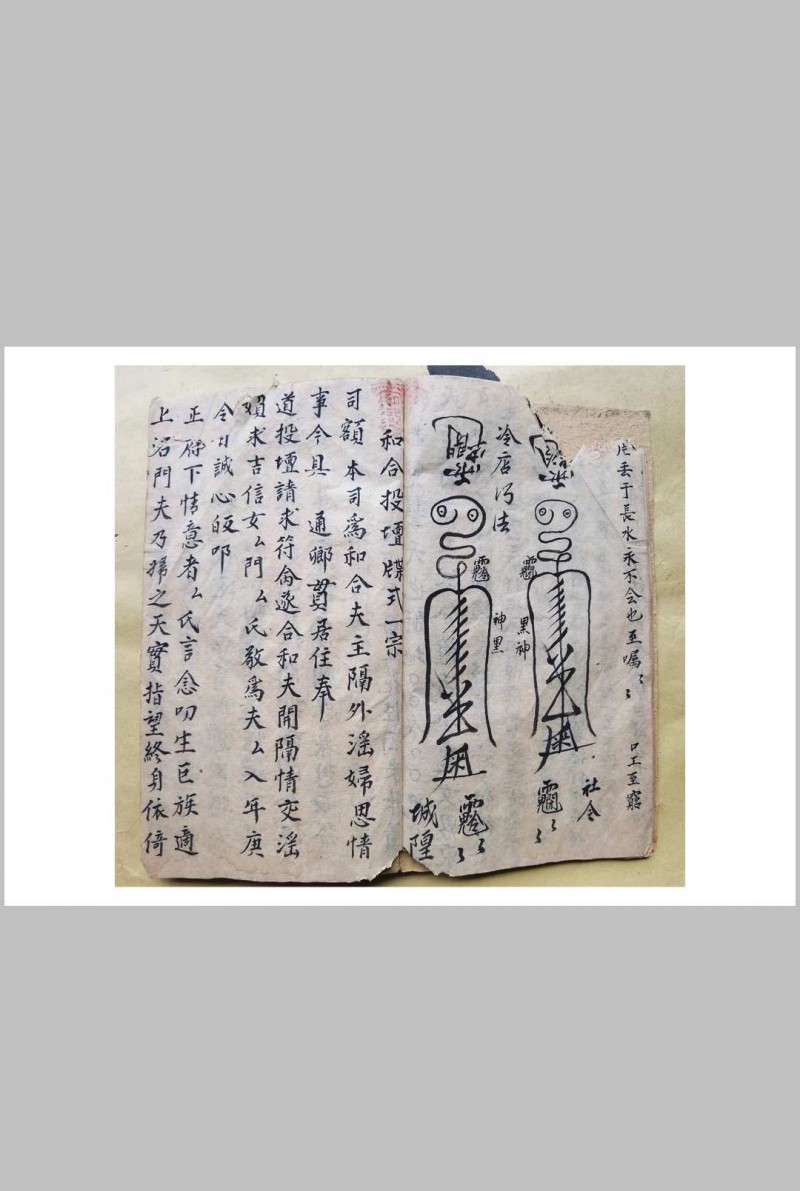 丢于長水永不会也至嘱
口工至竅
社令
黑神
冷店巧法
神黑
城隍
和合投壇牒式一宗
司額 本司爲和合夫主隔外滛婦恩情
事今具 通鄉貫居住奉
道投壇請求符命遂合和夫開隔情交滛
煩求吉信女厶門厶氏敬爲夫厶入年庚
今日誠心皈叩
正 下情意者厶氏言念叨生巨族適
上 門夫乃婦之天實指望終身依倚